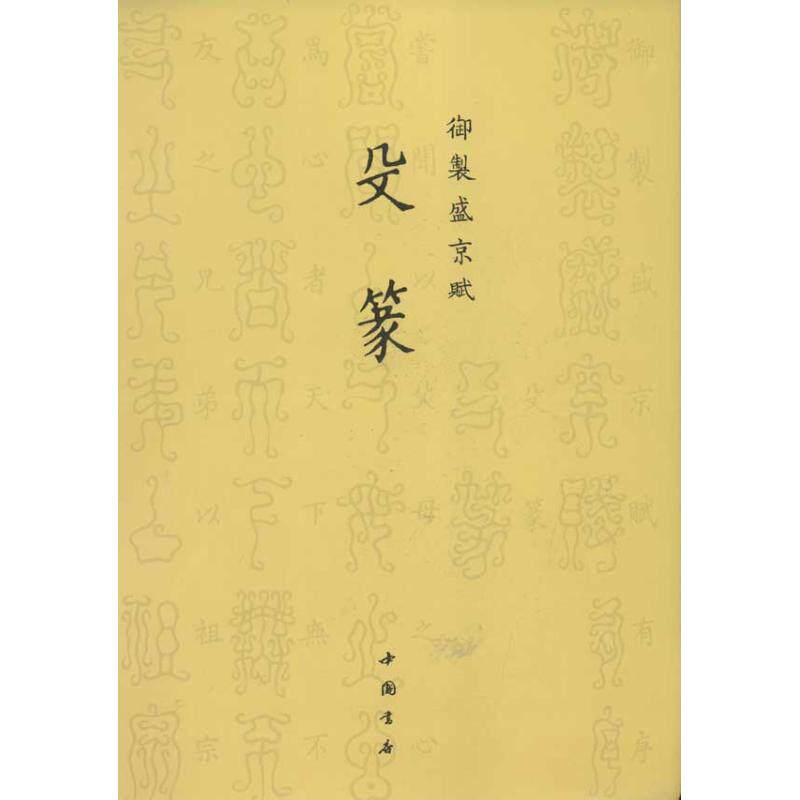 御製盛京賦
殳篆
中国书店
御製盛京賦有序
殳篆
嘗聞以父母之心
爲心者天下無不
友之兄弟以祖宗